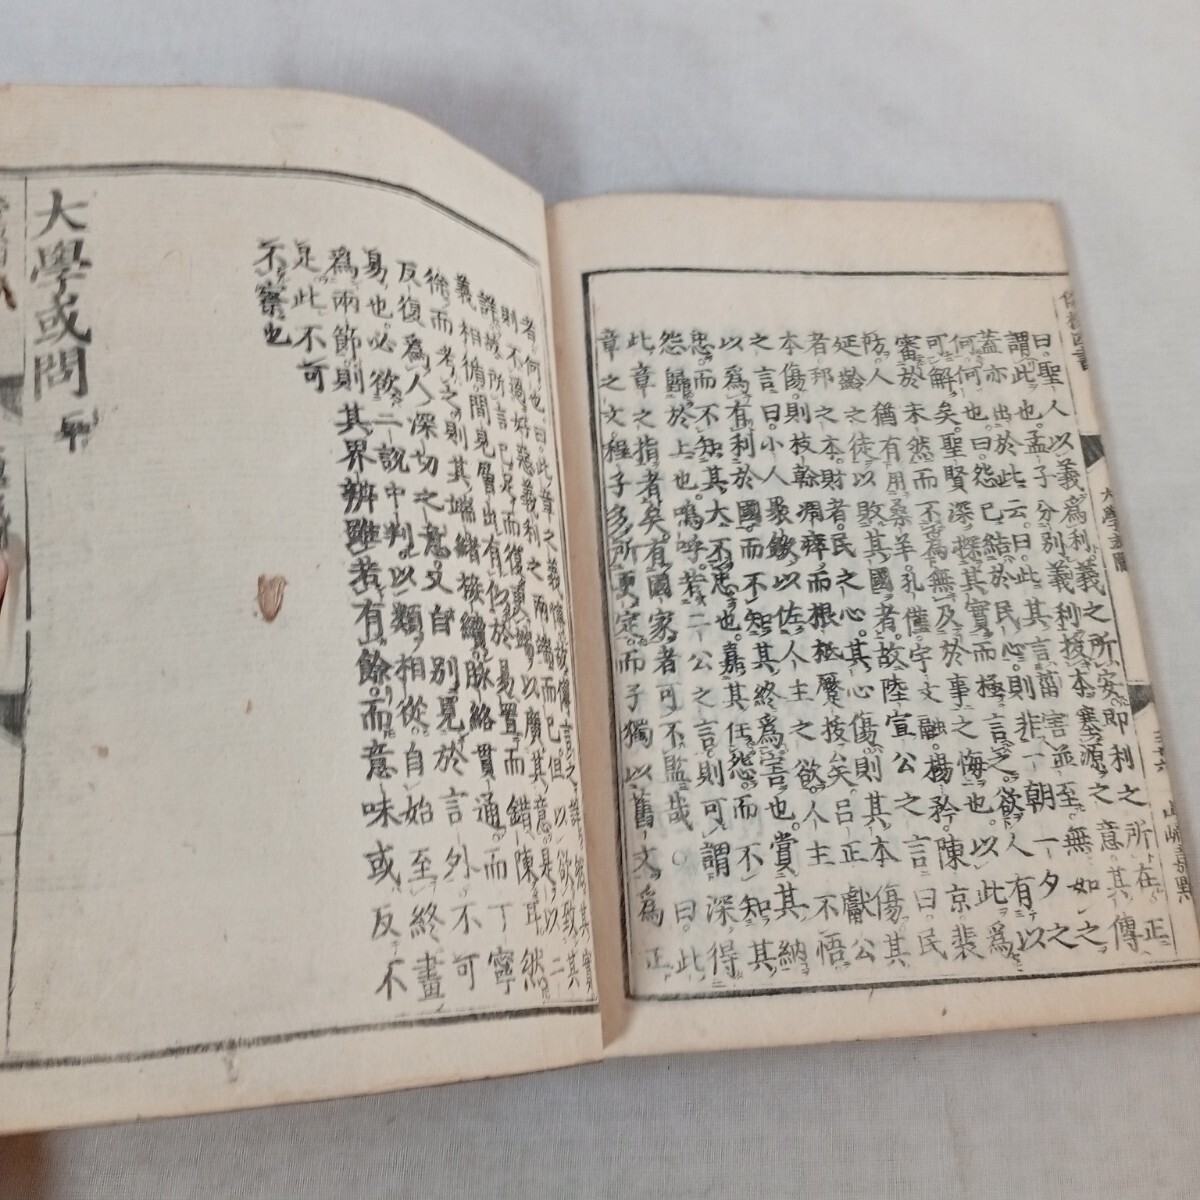 曰聖人以義爲利義之所安即利之所在正
謂此也孟子分別義利拔本塞源之意其傳
蓋亦出於此云曰此其言菑害並至無如之
何何也曰怨已結於民心則非一朝一夕之
可解矣聖賢深探其實而極言之欲人有以
審於未然而不爲無及於事之悔也以此爲
防人猶有用桑羊孔僅宇文融楊矜陳京裴
延齡之徒以敗其國者故陸宣公之言曰民
者邦之本財者民之心其心傷則其本傷其
本傷則枝幹凋瘁而根柢蹙拔矣呂正獻公
之言曰小人聚斂以佐人主之欲人主不悟
以爲有利於國而不知其終爲害也賞其納
忠而不知其大不忠也嘉其任怨而不知其
怨歸於上也嗚呼若二公之言則可謂深得
此章之指者矣有國家者可不監哉曰此
章之文程子多所更定而子獨以舊文爲正
者何也曰此章之義博故傳言之詳然其實
則不過好惡義利之兩端而已但以欲致其
詳故所言已足而復更端以廣其意是以二
義相循間見層出有似於易置而錯陳耳然
徐而考之則其端緒接續脉絡貫通而丁寧
反復爲人深切之意又自別見於言外不可
易也必欲二說中判以類相從自始至終畫
爲兩節則其界辨雖若有餘而意味或反不
足此不可
不察也
大學或問 畢